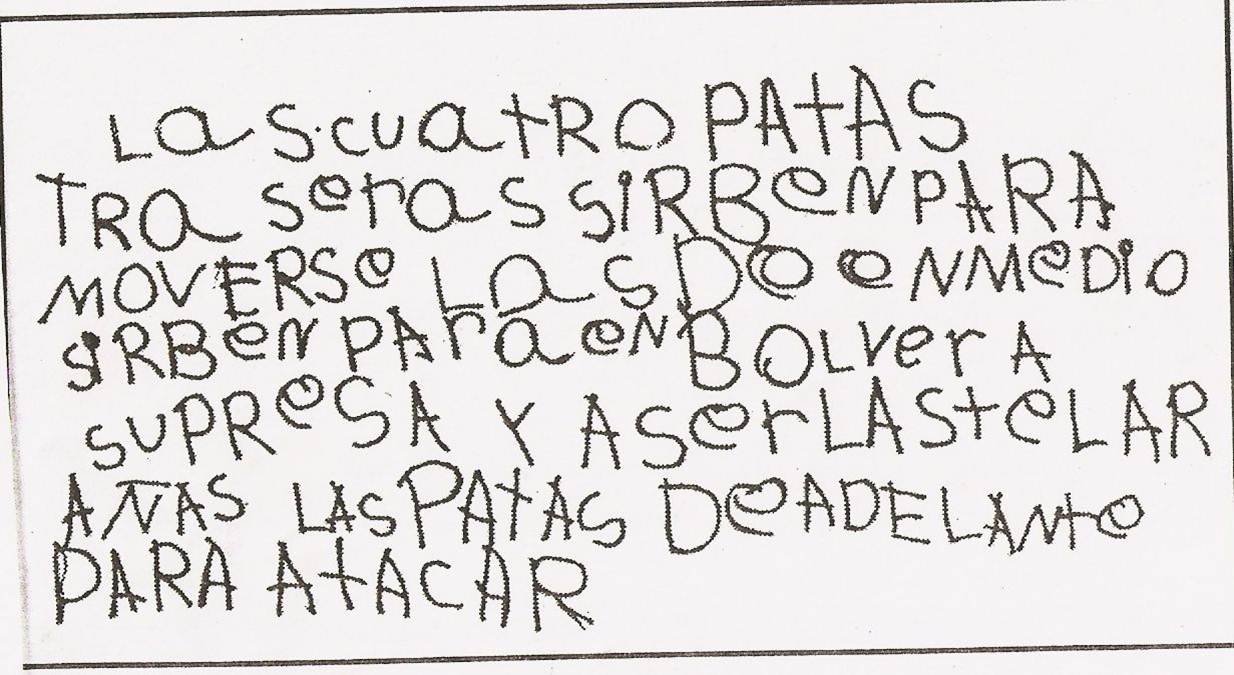 La s.cuatRO PAtAS
TRa seras SiRBeN PARA
MOVERSe Las De eNMeDiO
SiRBeN PAra eN BOLVer A
SUPReSA Y ASer LAS teLAR
AÑAS LAS PAtAS DeADELANte
PARA AtACAR